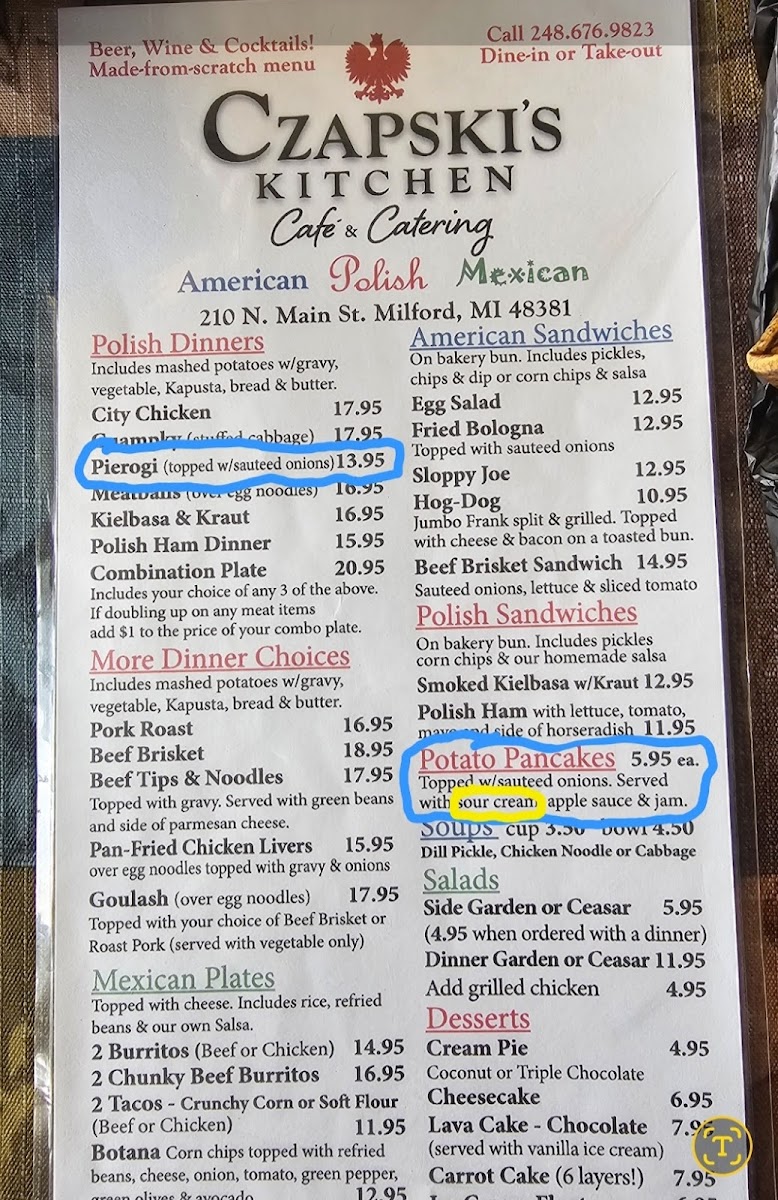 Beer, Wine & Cocktails!
Made-from-scratch menu
Call 248.676.9823
Dine-in or Take-out
CZAPSKI'S
KITCHEN
Café & Catering
American Polish Mexican
210 N. Main St. Milford, MI 48381
Polish Dinners
Includes mashed potatoes w/gravy,
vegetable, Kapusta, bread & butter.
City Chicken 17.95
(stuffed cabbage) 17.95
Pierogi (topped w/sauteed onions) 13.95
Meatballs (over egg noodles) 16.95
Kielbasa & Kraut 16.95
Polish Ham Dinner 15.95
Combination Plate 20.95
Includes your choice of any 3 of the above.
If doubling up on any meat items
add $1 to the price of your combo plate.
More Dinner Choices
Includes mashed potatoes w/gravy,
vegetable, Kapusta, bread & butter.
Pork Roast 16.95
Beef Brisket 18.95
Beef Tips & Noodles 17.95
Topped with gravy. Served with green beans
and side of parmesan cheese.
Pan-Fried Chicken Livers 15.95
over egg noodles topped with gravy & onions
Goulash (over egg noodles) 17.95
Topped with your choice of Beef Brisket or
Roast Pork (served with vegetable only)
Mexican Plates
Topped with cheese. Includes rice, refried
beans & our own Salsa.
2 Burritos (Beef or Chicken) 14.95
2 Chunky Beef Burritos 16.95
2 Tacos - Crunchy Corn or Soft Flour
(Beef or Chicken) 11.95
Botana Corn chips topped with refried
beans, cheese, onion, tomato, green pepper,
green olives & avocado 12.95
American Sandwiches
On bakery bun. Includes pickles,
chips & dip or corn chips & salsa
Egg Salad 12.95
Fried Bologna 12.95
Topped with sauteed onions
Sloppy Joe 12.95
Hog-Dog 10.95
Jumbo Frank split & grilled. Topped
with cheese & bacon on a toasted bun.
Beef Brisket Sandwich 14.95
Sauteed onions, lettuce & sliced tomato
Polish Sandwiches
On bakery bun. Includes pickles
corn chips & our homemade salsa
Smoked Kielbasa w/Kraut 12.95
Polish Ham with lettuce, tomato,
mayo and side of horseradish 11.95
Potato Pancakes 5.95 ea.
Topped w/sauteed onions. Served
with sour cream, apple sauce & jam.
Soups cup 3.50 bowl 4.50
Dill Pickle, Chicken Noodle or Cabbage
Salads
Side Garden or Ceasar 5.95
(4.95 when ordered with a dinner)
Dinner Garden or Ceasar 11.95
Add grilled chicken 4.95
Desserts
Cream Pie 4.95
Coconut or Triple Chocolate
Cheesecake 6.95
Lava Cake - Chocolate 7.95
(served with vanilla ice cream)
Carrot Cake (6 layers!) 7.95